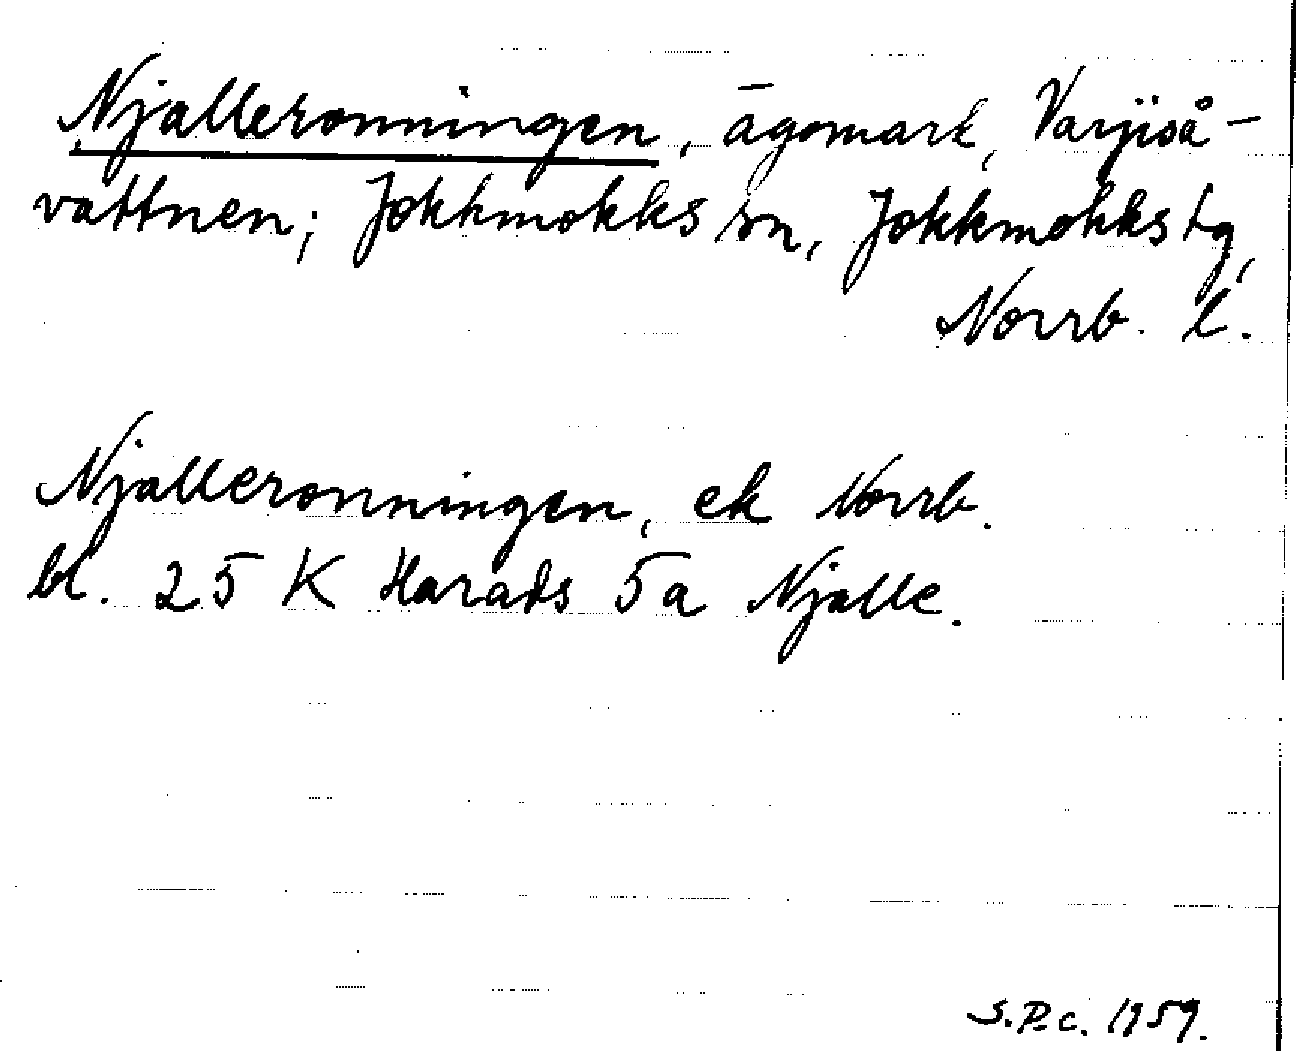 Njalleronningen, ägomark, Varjiså-
vattnen; Jokkmokks sn, Jokkmokks tg,
Norrb. l.
Njalleronningen, ek Norrb.
bl. 25 K Harads 5a Njalle.
S.P.c. 1959.